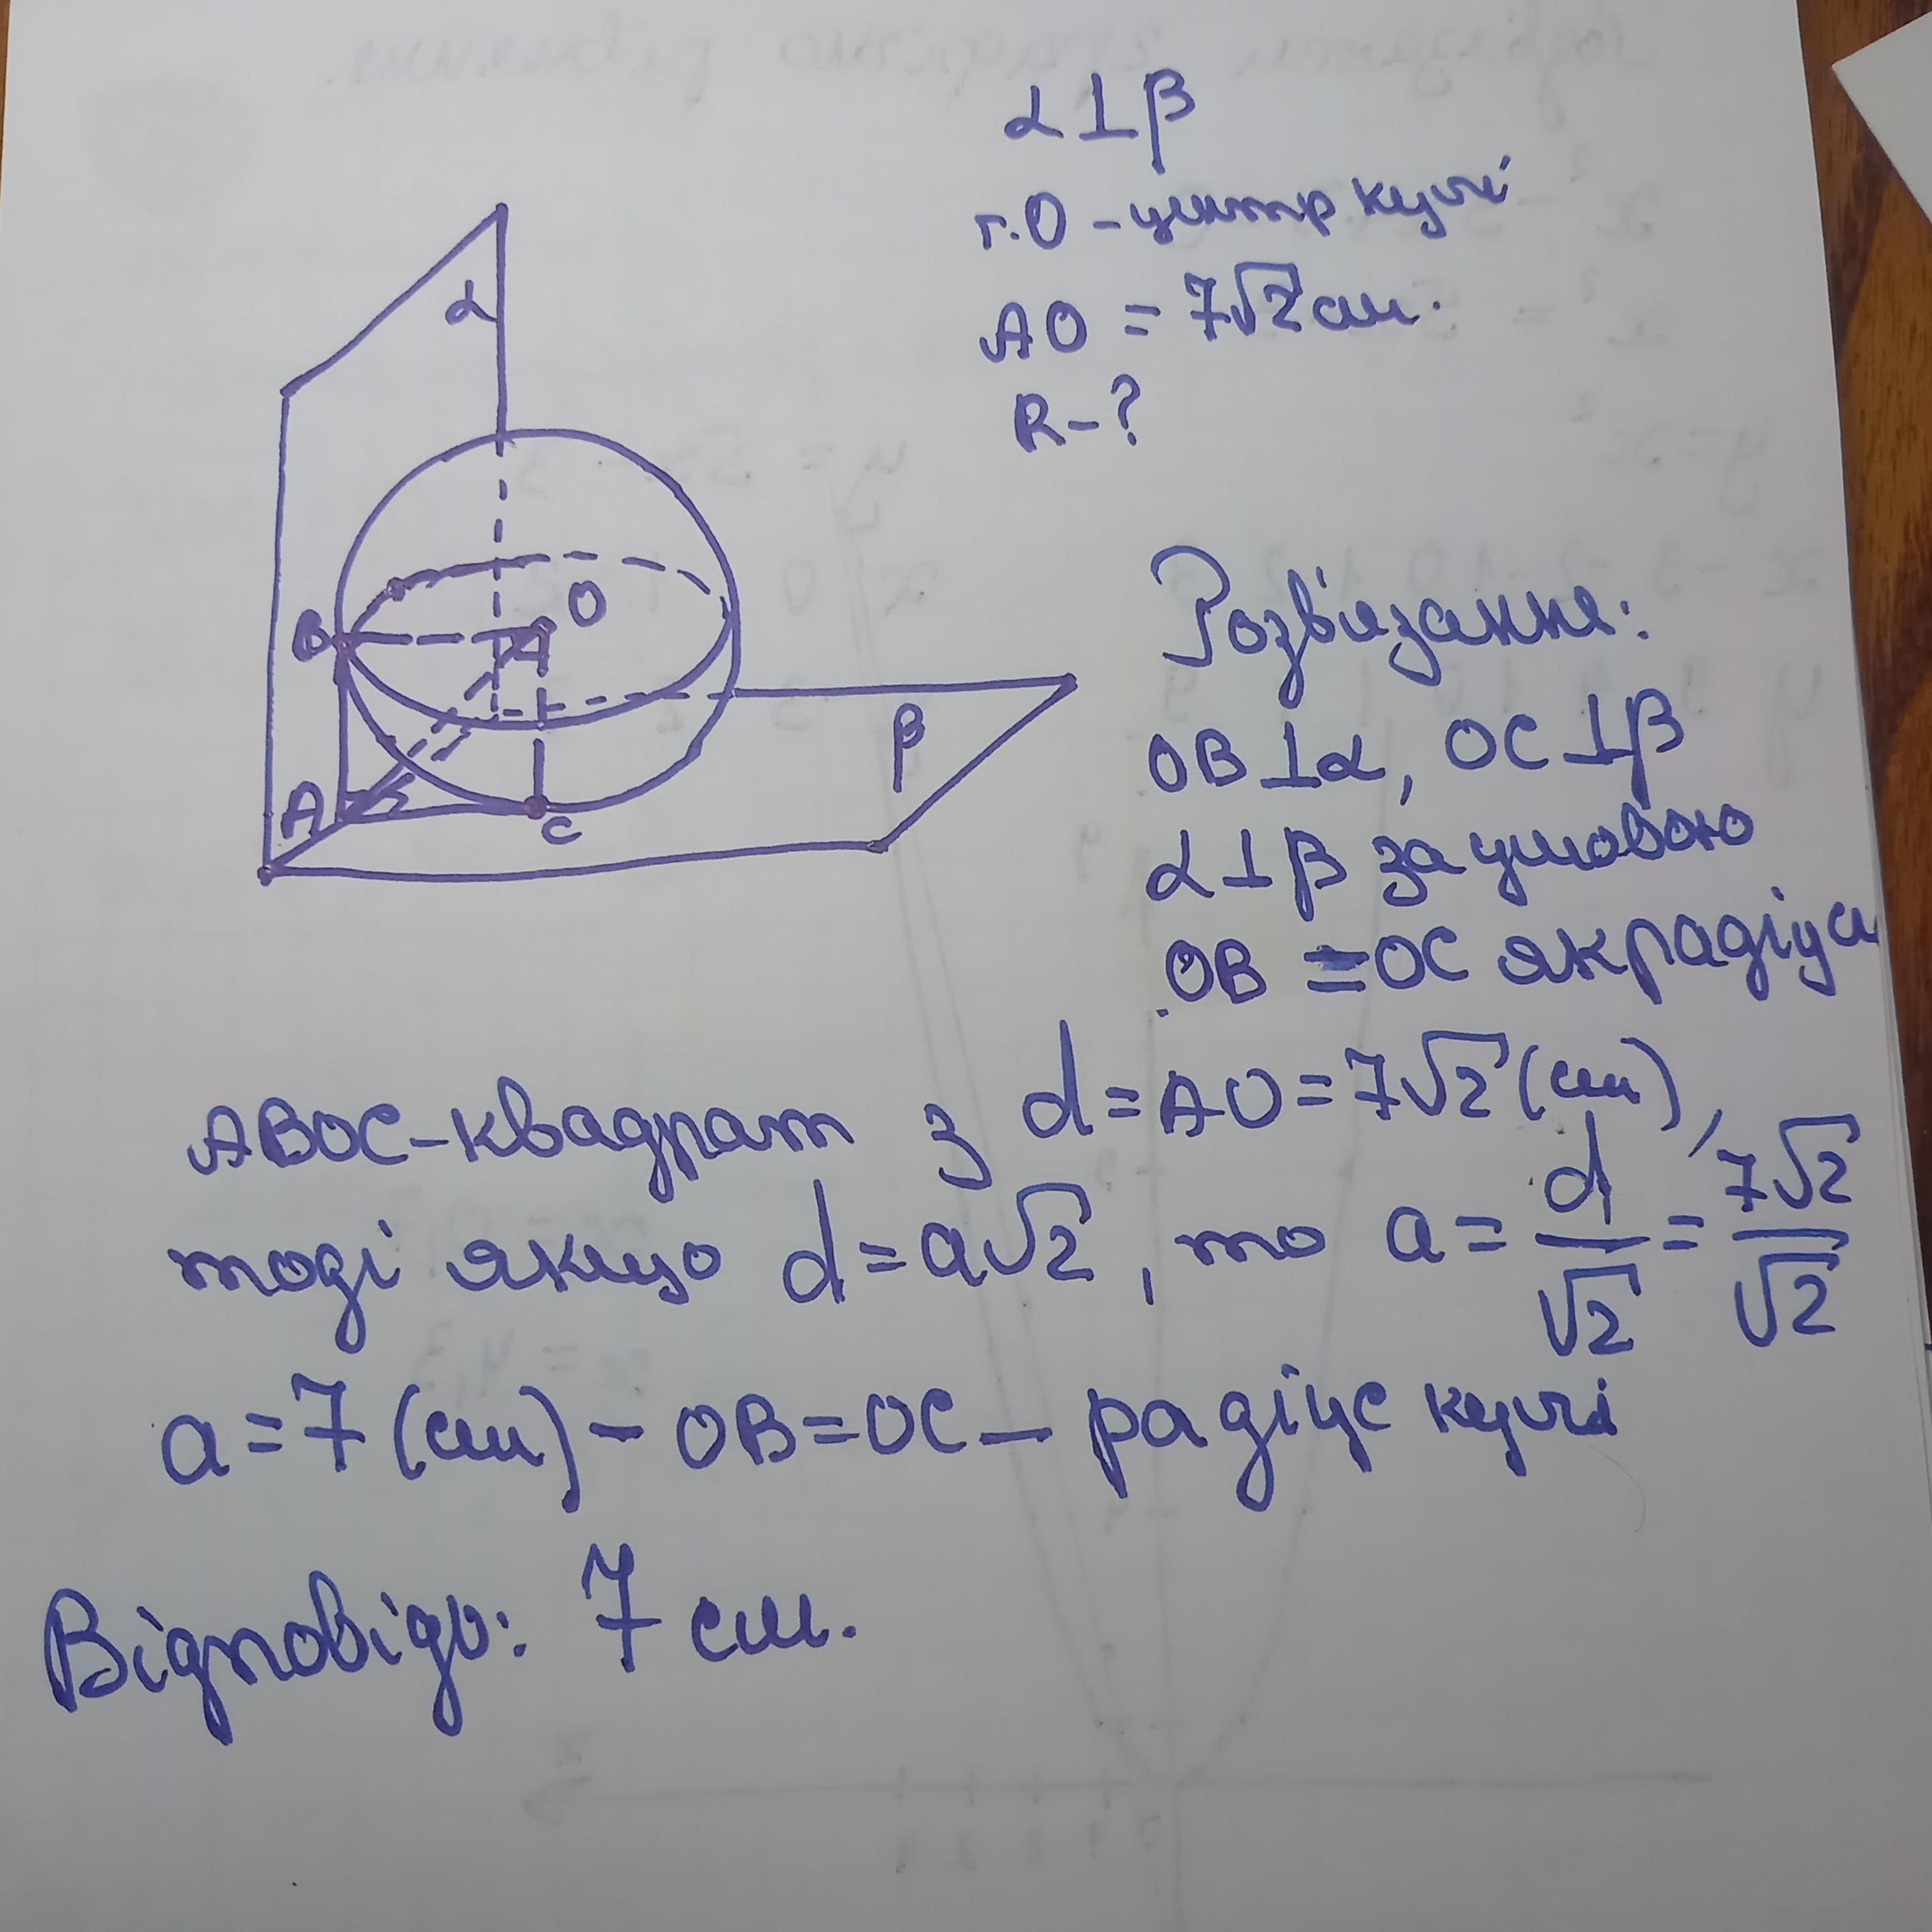 α⊥β
т.О - центр кулі
АО = 7√2 см.
R-?
α
B
O
A
C
β
Розв'язання:
OB⊥α, OC⊥β
α⊥β за умовою
OB = OC як радіуси
ABOC-квадрат з d=AO=7√2 (см),
тоді якщо d=a√2, то a= d/√2 = 7√2/√2
a=7 (см) - OB=OC- радіус кулі
Відповідь: 7 см.